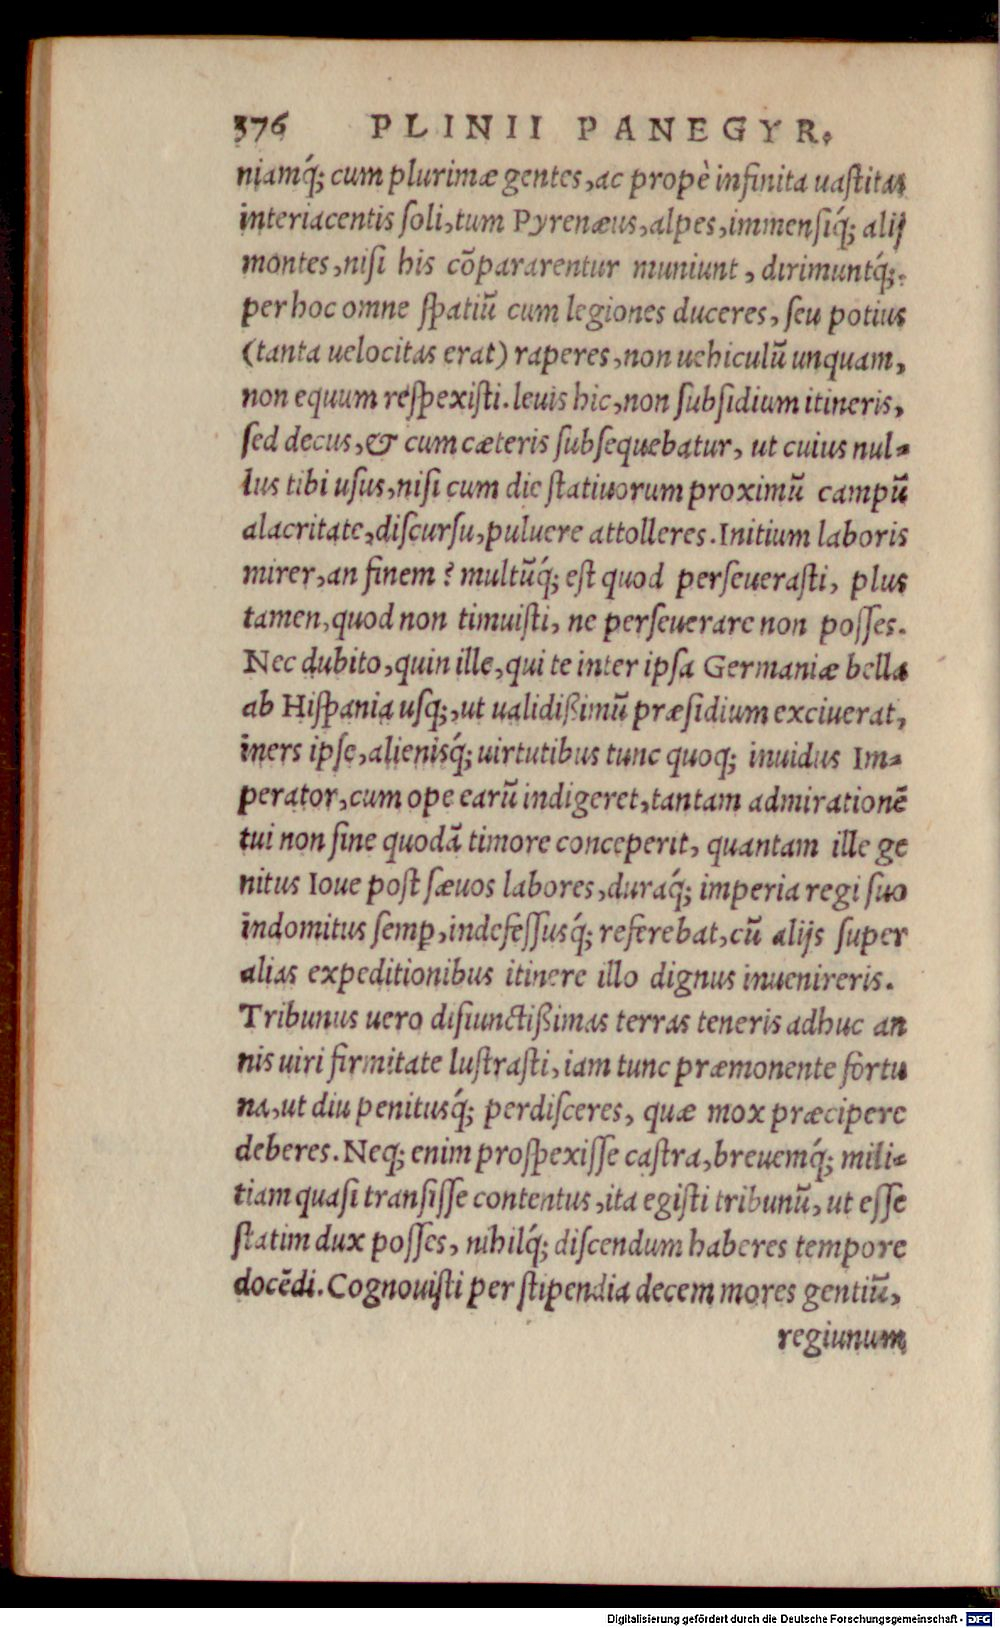 376 PLINII PANEGYR.
niamq́; cum plurimæ gentes, ac propè infinita uaſtitas
interiacentis ſoli, tum Pyrenæus, alpes, immenſiq́; alij
montes, niſi his cōpararentur muniunt, dirimuntq́;.
per hoc omne ſpatiū cum legiones duceres, ſeu potius
(tanta uelocitas erat) raperes, non uehiculū unquam,
non equum reſpexiſti. leuis hic, non ſubſidium itineris,
ſed decus, & cum cæteris ſubſequebatur, ut cuius nul-
lus tibi uſus, niſi cum die ſtatiuorum proximū campū
alacritate, diſcurſu, puluere attolleres. Initium laboris
mirer, an finem? multūq́; eſt quod perſeueraſti, plus
tamen, quod non timuiſti, ne perſeuerare non poſſes.
Nec dubito, quin ille, qui te inter ipſa Germaniæ bella
ab Hiſpania uſq;, ut ualidißimū præſidium exciuerat,
iners ipſe, alienisq́; uirtutibus tunc quoq; inuidus Im-
perator, cum ope earū indigeret, tantam admirationē
tui non ſine quodā timore conceperit, quantam ille ge
nitus Ioue poſt ſæuos labores, duraq́; imperia regi ſuo
indomitus ſemꝑ, indefeſſusq́; referebat, cū alijs ſuper
alias expeditionibus itinere illo dignus inuenireris.
Tribunus uero diſiunctißimas terras teneris adhuc an
nis uiri firmitate luſtraſti, iam tunc præmonente fortu
na, ut diu penitusq́; perdiſceres, quæ mox præcipere
deberes. Neq; enim proſpexiſſe caſtra, breuemq́; mili-
tiam quaſi tranſiſſe contentus, ita egiſti tribunū, ut eſſe
ſtatim dux poſſes, nihilq́; diſcendum haberes tempore
docēdi. Cognouiſti per ſtipendia decem mores gentiū,
regiunum
Digitalisierung gefördert durch die Deutsche Forschungsgemeinschaft - DFG